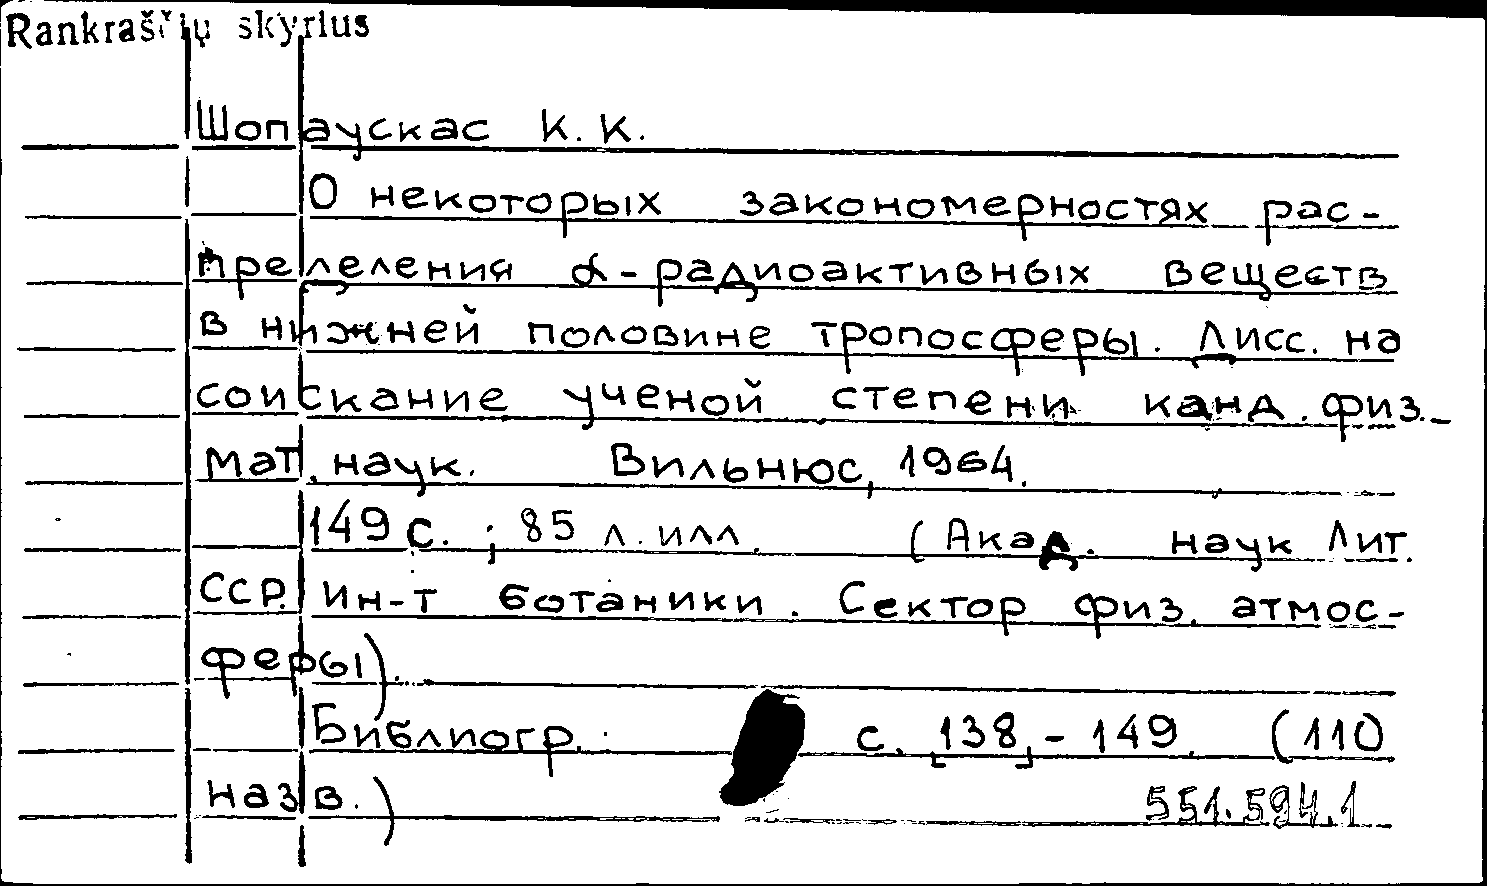 Rankraščių skyrius
Шопаускас К. К.
О некоторых закономерностях рас-
пределения α-радиоактивных веществ
в нижней половине тропосферы. Дисс. на
соискание ученой степени канд. физ.-
мат. наук. Вильнюс, 1964.
149 с. ; 85 л. илл. (Акад. наук Лит.
ССР. Ин-т ботаники. Сектор физ. атмос-
феры).
Библиогр. с. [138] - 149. (110
назв.)
551.594.1